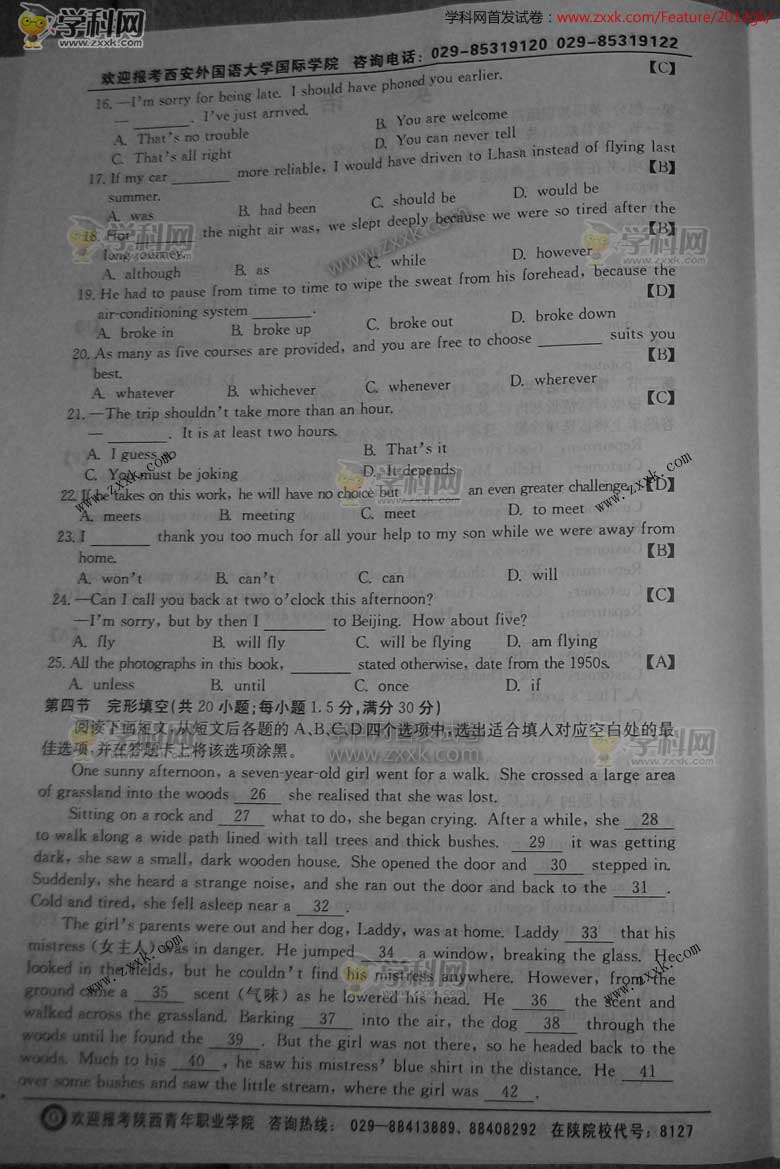 学科网首发试卷：www.zxxk.com/Feature/2012gk/
学科网
www.zxxk.com
欢迎报考西安外国语大学国际学院 咨询电话：029-85319120 029-85319122
16. —I'm sorry for being late. I should have phoned you earlier. 【C】
— ________. I've just arrived.
A. That's no trouble B. You are welcome
C. That's all right D. You can never tell
17. If my car ________ more reliable, I would have driven to Lhasa instead of flying last
summer. 【B】
A. was B. had been C. should be D. would be
18. Hot ________ the night air was, we slept deeply because we were so tired after the
long journey. 【B】
A. although B. as C. while D. however
19. He had to pause from time to time to wipe the sweat from his forehead, because the
air-conditioning system ________. 【D】
A. broke in B. broke up C. broke out D. broke down
20. As many as five courses are provided, and you are free to choose ________ suits you
best. 【B】
A. whatever B. whichever C. whenever D. wherever
21. —The trip shouldn't take more than an hour. 【C】
— ________. It is at least two hours.
A. I guess so B. That's it
C. You must be joking D. It depends
22. If he takes on this work, he will have no choice but ________ an even greater challenge. 【D】
A. meets B. meeting C. meet D. to meet
23. I ________ thank you too much for all your help to my son while we were away from
home. 【B】
A. won't B. can't C. can D. will
24. —Can I call you back at two o'clock this afternoon? 【C】
—I'm sorry, but by then I ________ to Beijing. How about five?
A. fly B. will fly C. will be flying D. am flying
25. All the photographs in this book, ________ stated otherwise, date from the 1950s. 【A】
A. unless B. until C. once D. if
第四节 完形填空(共20小题;每小题1.5分,满分30分)
阅读下面短文,从短文后各题的A、B、C、D四个选项中,选出适合填入对应空白处的最
佳选项,并在答题卡上将该选项涂黑。
One sunny afternoon, a seven-year-old girl went for a walk. She crossed a large area
of grassland into the woods 26 she realised that she was lost.
Sitting on a rock and 27 what to do, she began crying. After a while, she 28
to walk along a wide path lined with tall trees and thick bushes. 29 it was getting
dark, she saw a small, dark wooden house. She opened the door and 30 stepped in.
Suddenly, she heard a strange noise, and she ran out the door and back to the 31 .
Cold and tired, she fell asleep near a 32 .
The girl's parents were out and her dog, Laddy, was at home. Laddy 33 that his
mistress (女主人) was in danger. He jumped 34 a window, breaking the glass. He
looked in the fields, but he couldn't find his mistress anywhere. However, from the
ground came a 35 scent (气味) as he lowered his head. He 36 the scent and
walked across the grassland. Barking 37 into the air, the dog 38 through the
woods until he found the 39 . But the girl was not there, so he headed back to the
woods. Much to his 40 , he saw his mistress' blue shirt in the distance. He 41
over some bushes and saw the little stream, where the girl was 42 .
欢迎报考陕西青年职业学院 咨询热线： 029-88413889、88408292 在陕院校代号：8127